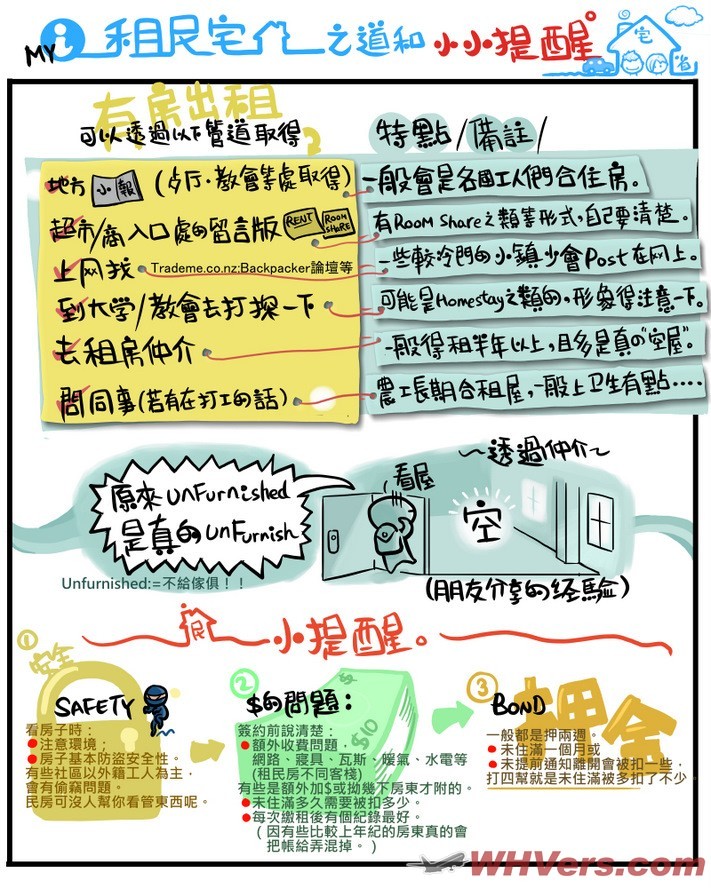 MY i 租民宅 之道和 小小提醒
宅
省
有房出租
可以透過以下管道取得
特點/備註/
地方 小報 (歺厅·教會等處取得)
一般會是各國工人們合住房。
超市/商入口處的留言版 RENT ROOM SHARE
有Room Share之類等形式,自己要清楚。
上网找 Trademe.co.nz;Backpacker論壇等
一些較冷門的小鎮少會Post在网上。
到大学/教會去打探一下
可能是Homestay之類的,形象得注意一下。
去租房仲介
一般得租半年以上,且多是真的"空屋"。
問同事(若有在打工的話)
農工長期合租屋,一般上卫生有點....
原來unFurnished
是真的unFurnish
看屋
~透過仲介~
空
Unfurnished:=不給傢俱!!
(朋友分享的经驗)
民 小提醒。
① 安全
SAFETY
看房子時:
注意環境;
房子基本防盜安全性。
有些社區以外籍工人為主,
會有偷竊問題。
民房可沒人幫你看管東西呢。
② $的問題:
$10
簽約前說清楚:
額外收費問題,
網路、寢具、瓦斯、暖氣、水電等
(租民房不同客棧)
有些是額外加$或拗幾下房東才附的。
未住滿多久需要被扣多少。
每次繳租後有個紀錄最好。
(因有些比較上年紀的房東真的會
把帳給弄混掉。)
③ BOND 押金
一般都是押兩週。
未住滿一個月或
未提前通知離開會被扣一些,
打四幫就是未住滿被多扣了不少。
WHVers.com